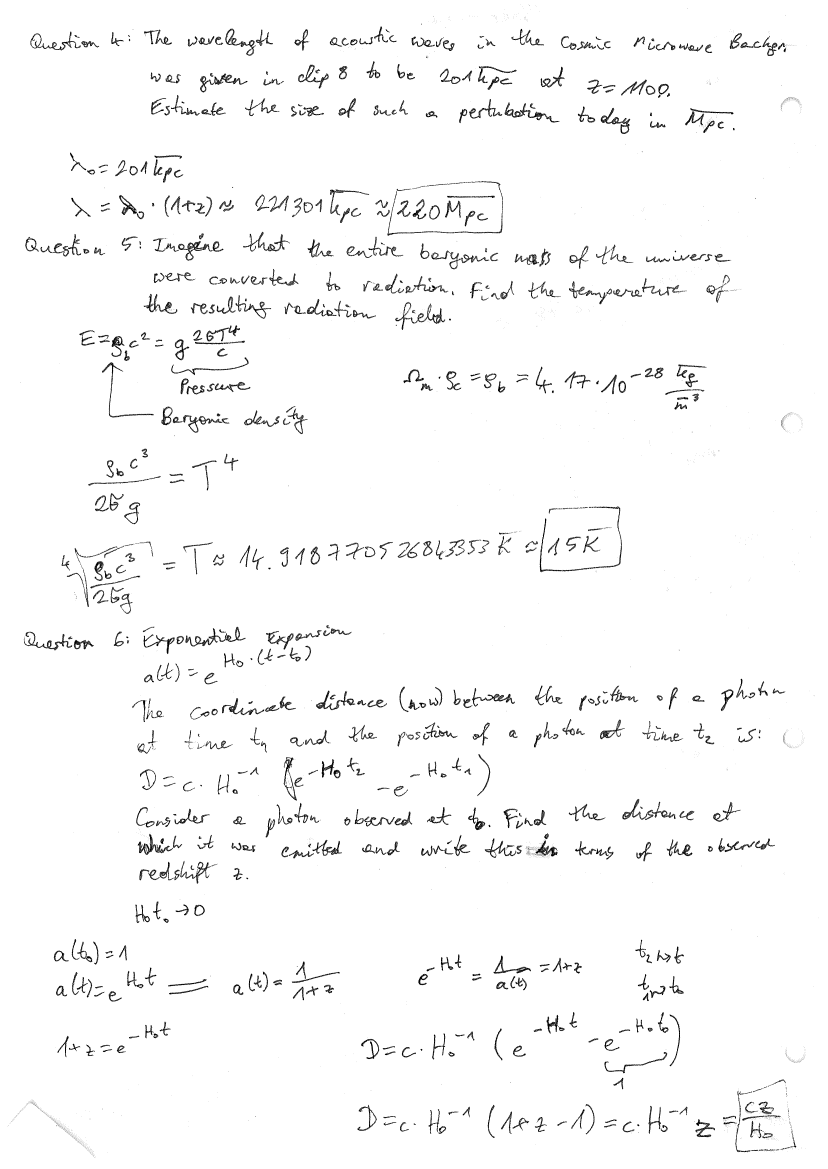 Question 4: The wavelength of acoustic waves in the Cosmic Microwave Backgr.
was given in clip 8 to be 201 kpc at z=1100.
Estimate the size of such a pertubation today in Mpc.
λ₀=201 kpc
λ = λ₀·(1+z) ≈ 221301 kpc ≈ 220 Mpc
Question 5: Imagine that the entire baryonic mass of the universe
were converted to radiation. Find the temperature of
the resulting radiation field.
E=ρ_b c² = g 2σT⁴/c
Pressure
Ω_m·ρ_c = ρ_b = 4.17·10⁻²⁸ kg/m³
Baryonic density
ρ_b c³/(2σg) = T⁴
⁴√(ρ_b c³/(2σg)) = T ≈ 14.918770526843353 K ≈ 15K
Question 6: Exponential Expansion
a(t)=e^(H₀·(t-t₀))
The coordinate distance (now) between the position of a photon
at time t₁ and the position of a photon at time t₂ is:
D=c·H₀⁻¹ (e^(-H₀t₂) - e^(-H₀t₁))
Consider a photon observed at t₀. Find the distance at
which it was emitted and write this in terms of the observed
redshift z.
H₀t₀→0
a(t₀)=1
a(t)=e^(H₀t) = a(t)= 1/(1+z)
e^(-H₀t) = 1/a(t) = 1+z
t₂→t
t₁→t₀
1+z=e^(-H₀t)
D=c·H₀⁻¹ (e^(-H₀t) - e^(-H₀t₀))
1
D=c·H₀⁻¹ (1+z-1)=c·H₀⁻¹ z = cz/H₀